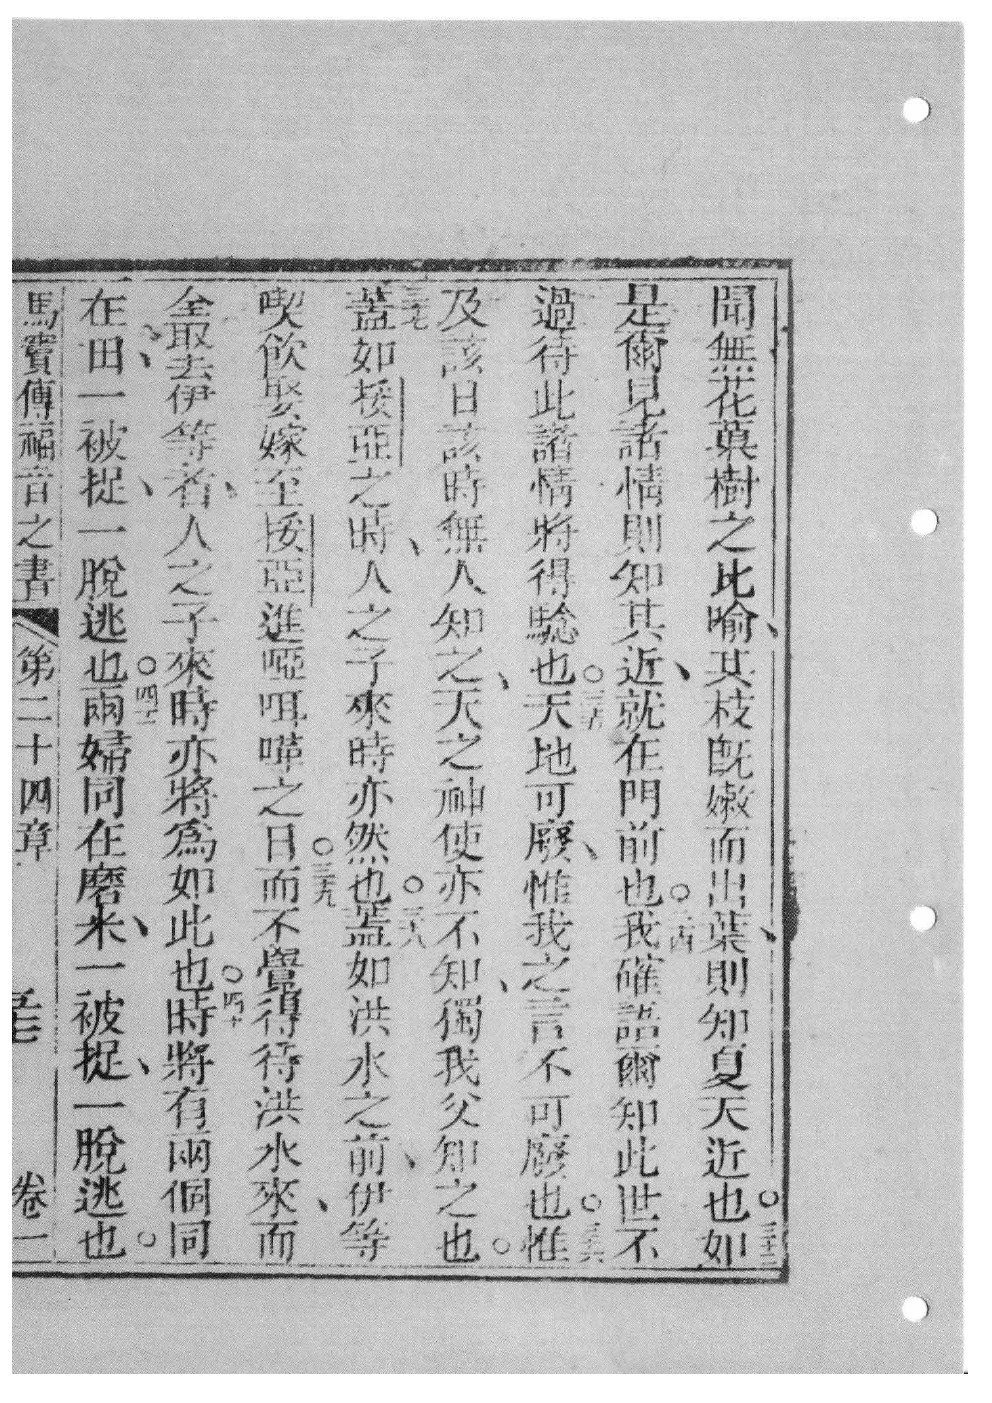 聞無花菓樹之比喻、其枝旣嫩而出葉、則知夏天近也○三三如
是爾見諸情則知其近、就在門前也○三四我確語爾知此世不
過待此諸情將得騐也○三五天地可廢、惟我之言不可廢也○三六惟
及該日該時無人知之、天之神使亦不知、獨我父知之也○
三七蓋如挼亞之時、人之子來時亦然也○三八蓋如洪水之前、伊等
喫飲娶嫁至挼亞進啞咡㗮之日○三九而不覺得待洪水來、而
全取去伊等者、人之子來時亦將爲如此也○四十時將有兩個同
在田、一被捉、一脫逃也○四一兩婦同在磨米、一被捉、一脫逃也○
馬竇傳福音之書 第二十四章 卷一